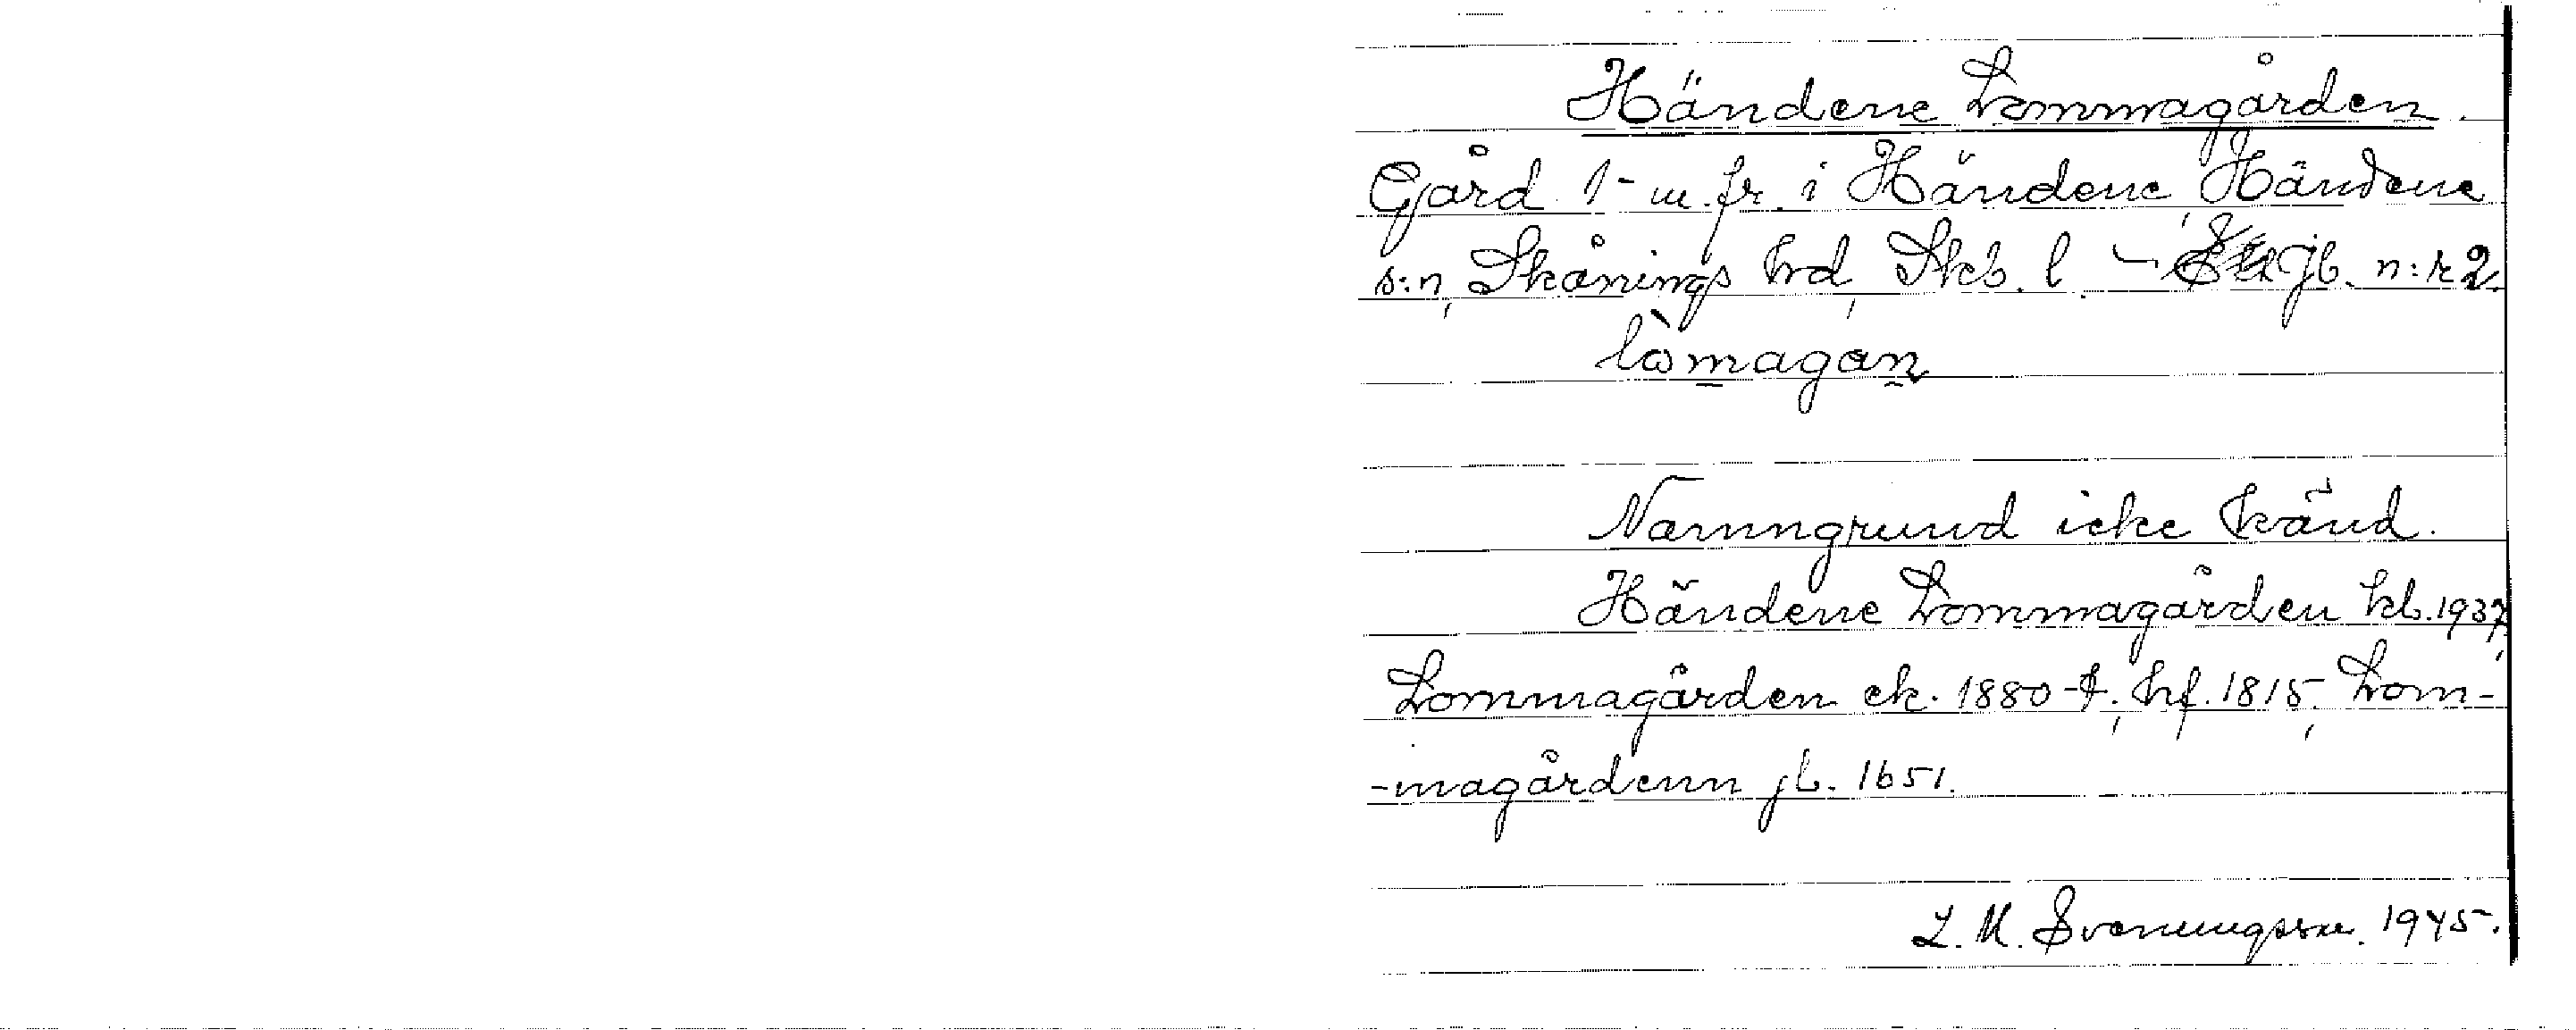 Händene Lommagården.
Gård 1- m. fr. i Händene, Händene
s:n, Skånings hd, Skb. l. – Jb. n:r 2.
lòmagan
Namngrund icke känd.
Händene Lommagården kb. 1937,
Lommagården ek. 1880-t., hf. 1815, Lom-
-magårdenn jb. 1651.
L. M. Svenungsson. 1945.